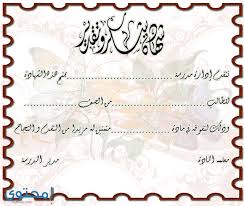 شهادة شكر وتقدير
تتقدم إدارة مدرسة .................... بمنح هذه الشهادة
للطالب .................... من الصف ....................
وذلك لتفوقه في مادة .................... متمنين له مزيدا من التقدم والنجاح
معلم المادة
مدير المدرسة
محتوى